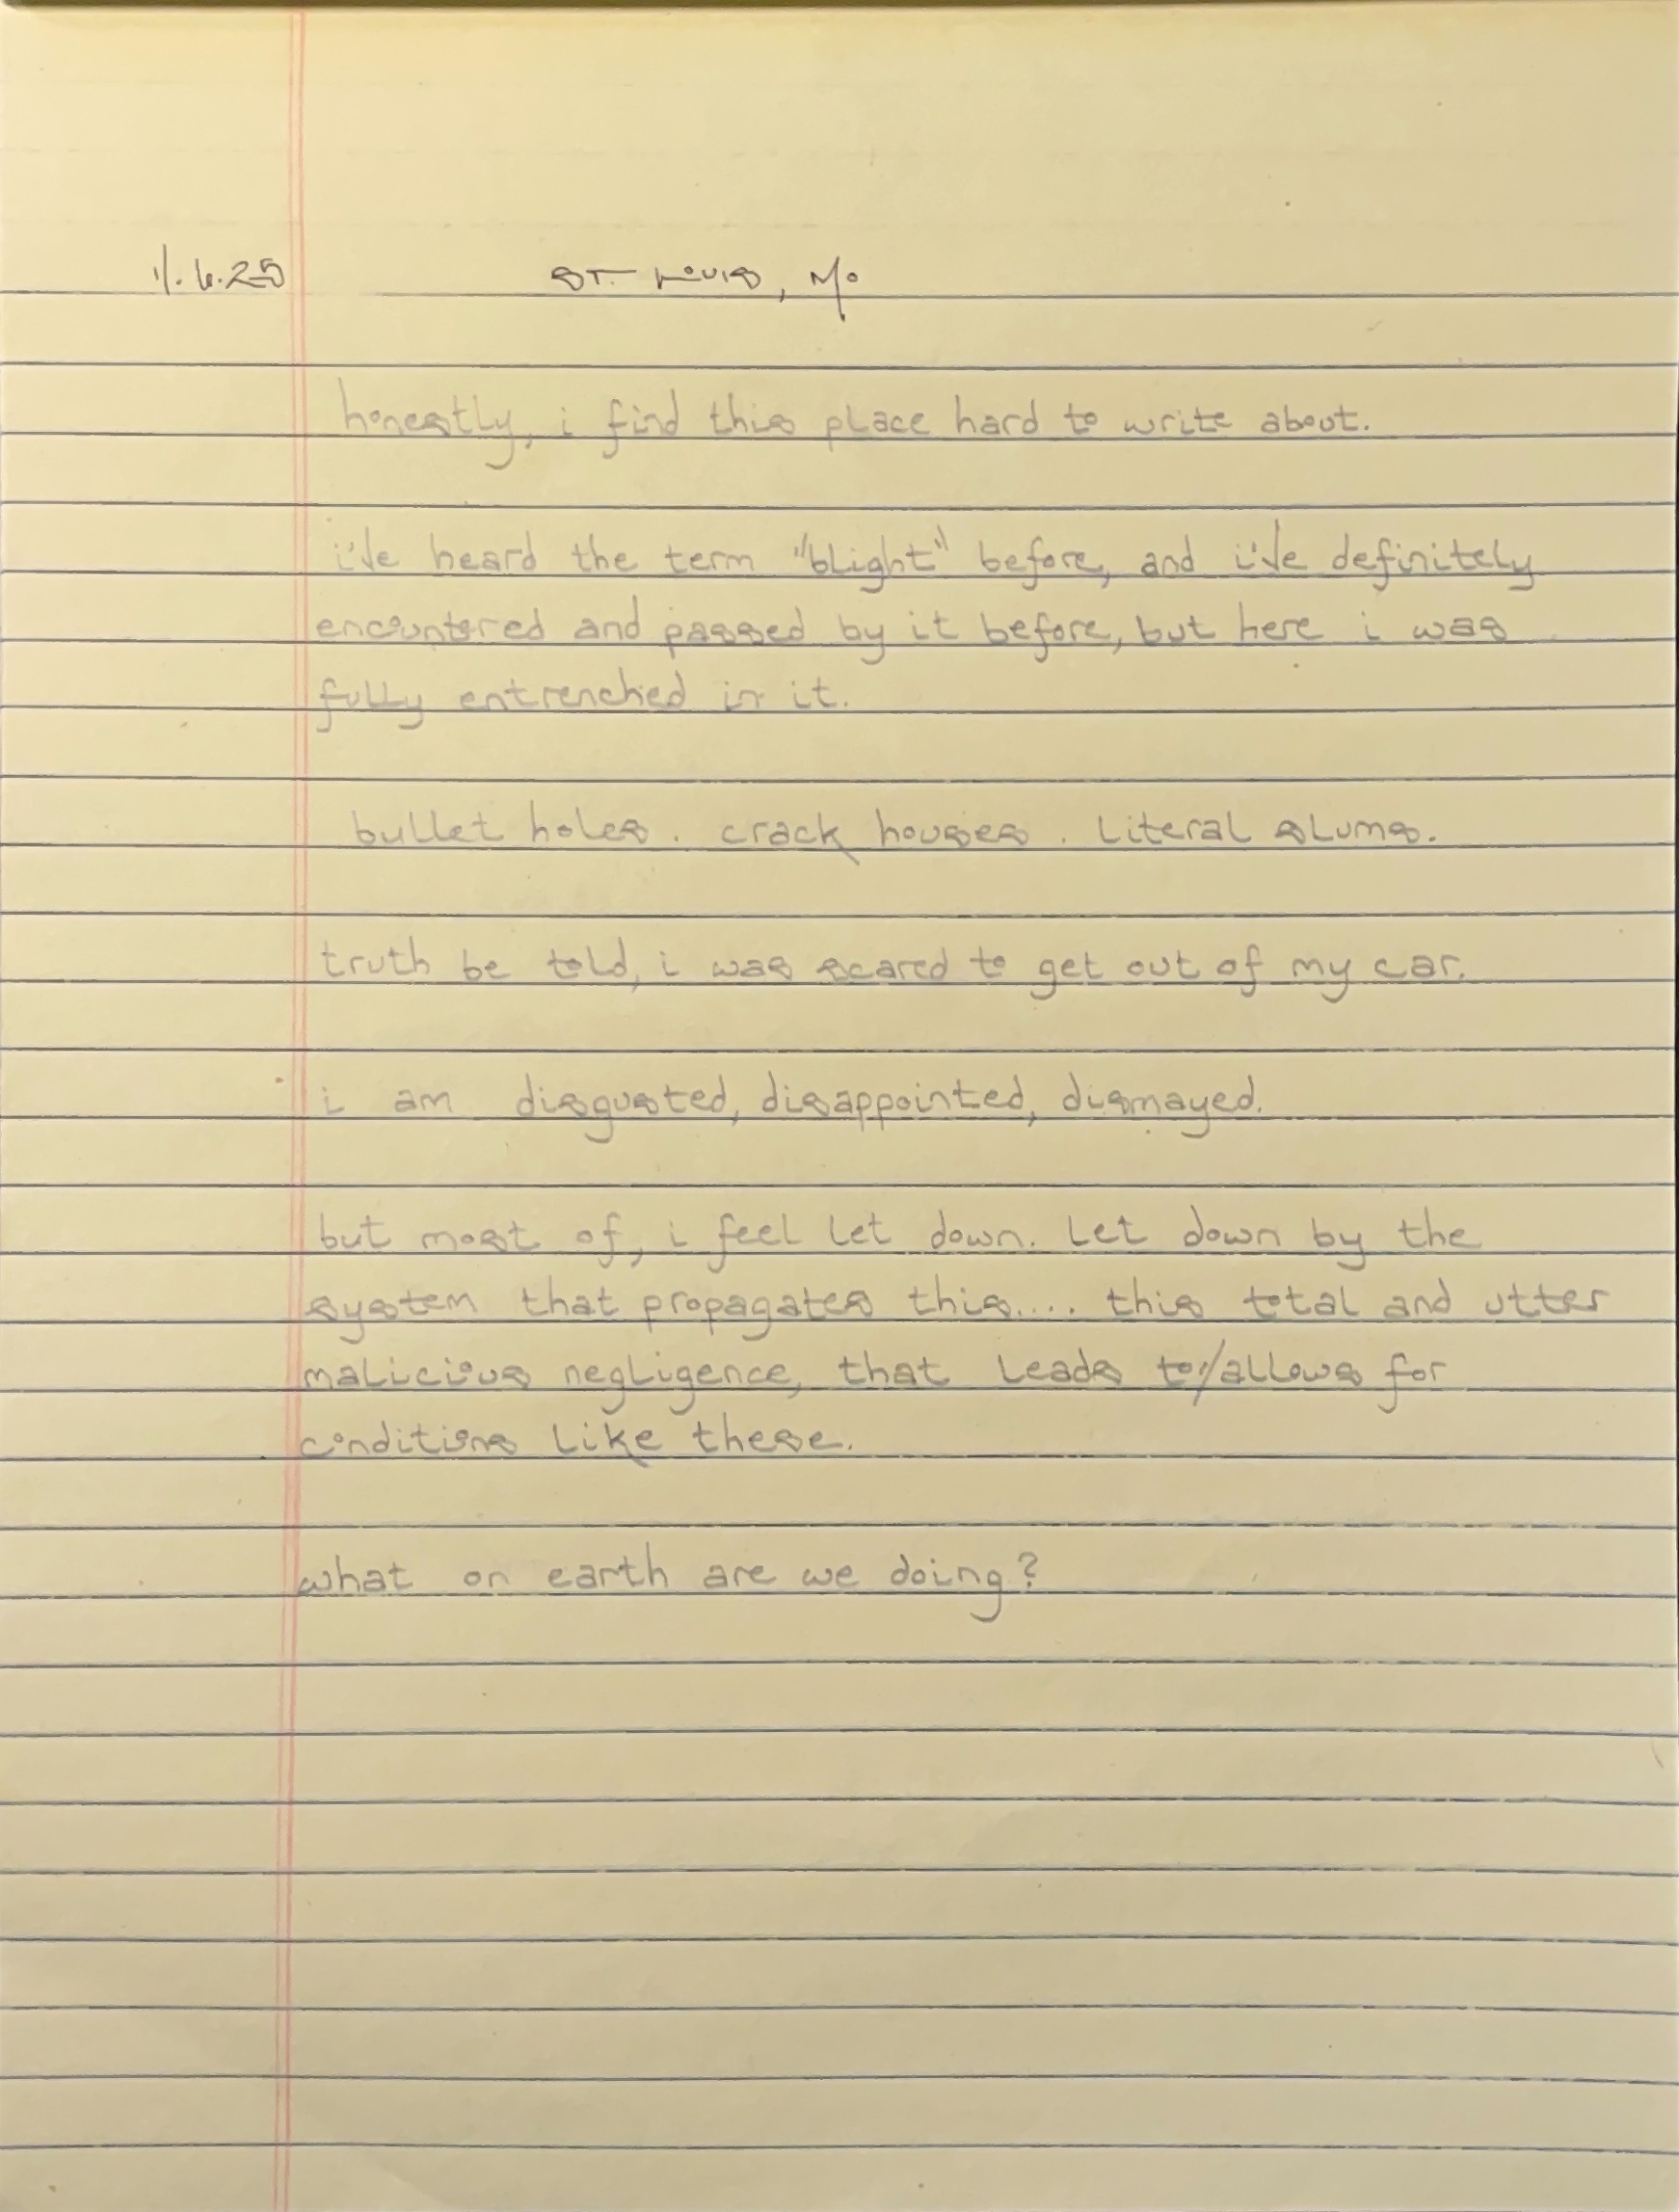 11.6.25 ST. LOUIS, MO
honestly, i find this place hard to write about.
i've heard the term "blight" before, and i've definitely
encountered and passed by it before, but here i was
fully entrenched in it.
bullet holes. crack houses. literal slums.
truth be told, i was scared to get out of my car.
i am disgusted, disappointed, dismayed.
but most of, i feel let down. let down by the
system that propagates this.... this total and utter
malicious negligence, that leads to/allows for
conditions like these.
what on earth are we doing?